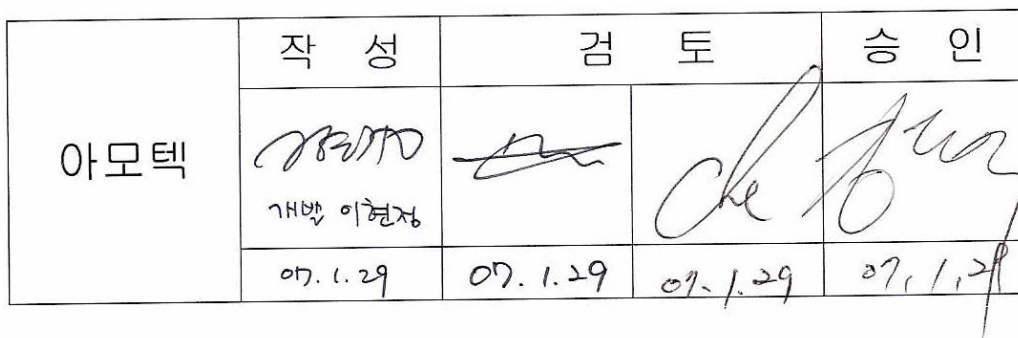 작 성 검 토 승 인
아모텍
개발 이현정
07.1.29 07.1.29 07.1.29 07.1.29